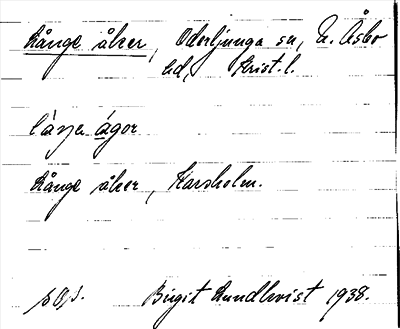 Långe åker, Oderljunga sn, N. Åsbo
hd, Krist. l.
låŋa ágor
Långe åker, Karsholm.
s Og s.
Birgit Lundkvist 1938.